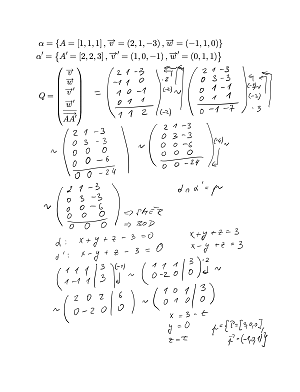 α = {A = [1,1,1], v⃗ = (2,1,−3), w⃗ = (−1,1,0)}
α' = {A' = [2,2,3], v⃗' = (1,0,−1), w⃗' = (0,1,1)}
Q = ( v⃗ w⃗ v⃗' w⃗' AA⃗' ) = ( 2 1 -3 / -1 1 0 / 1 0 -1 / 0 1 1 / 1 1 2 ) ~ ( 2 1 -3 / 0 3 -3 / 0 1 -1 / 0 1 1 / 0 -1 -7 )
~ ( 2 1 -3 / 0 3 -3 / 0 0 0 / 0 0 -6 / 0 0 -24 ) ~ ( 2 1 -3 / 0 3 -3 / 0 0 -6 / 0 0 0 / 0 0 -24 )
~ ( 2 1 -3 / 0 3 -3 / 0 0 -6 / 0 0 0 / 0 0 0 ) α ∩ α' = p
⇒ BOD
α: x + y + z - 3 = 0 x + y + z = 3
α': x - y + z - 3 = 0 x - y + z = 3
( 1 1 1 | 3 / 1 -1 1 | 3 ) (-1) ~ ( 1 1 1 | 3 / 0 -2 0 | 0 ) ·2
~ ( 2 0 2 | 6 / 0 -2 0 | 0 ) ~ ( 1 0 1 | 3 / 0 1 0 | 0 )
x = 3 - t
y = 0
z = t
p = { P = [3,0,0],
p⃗ = (-1,0,1) }